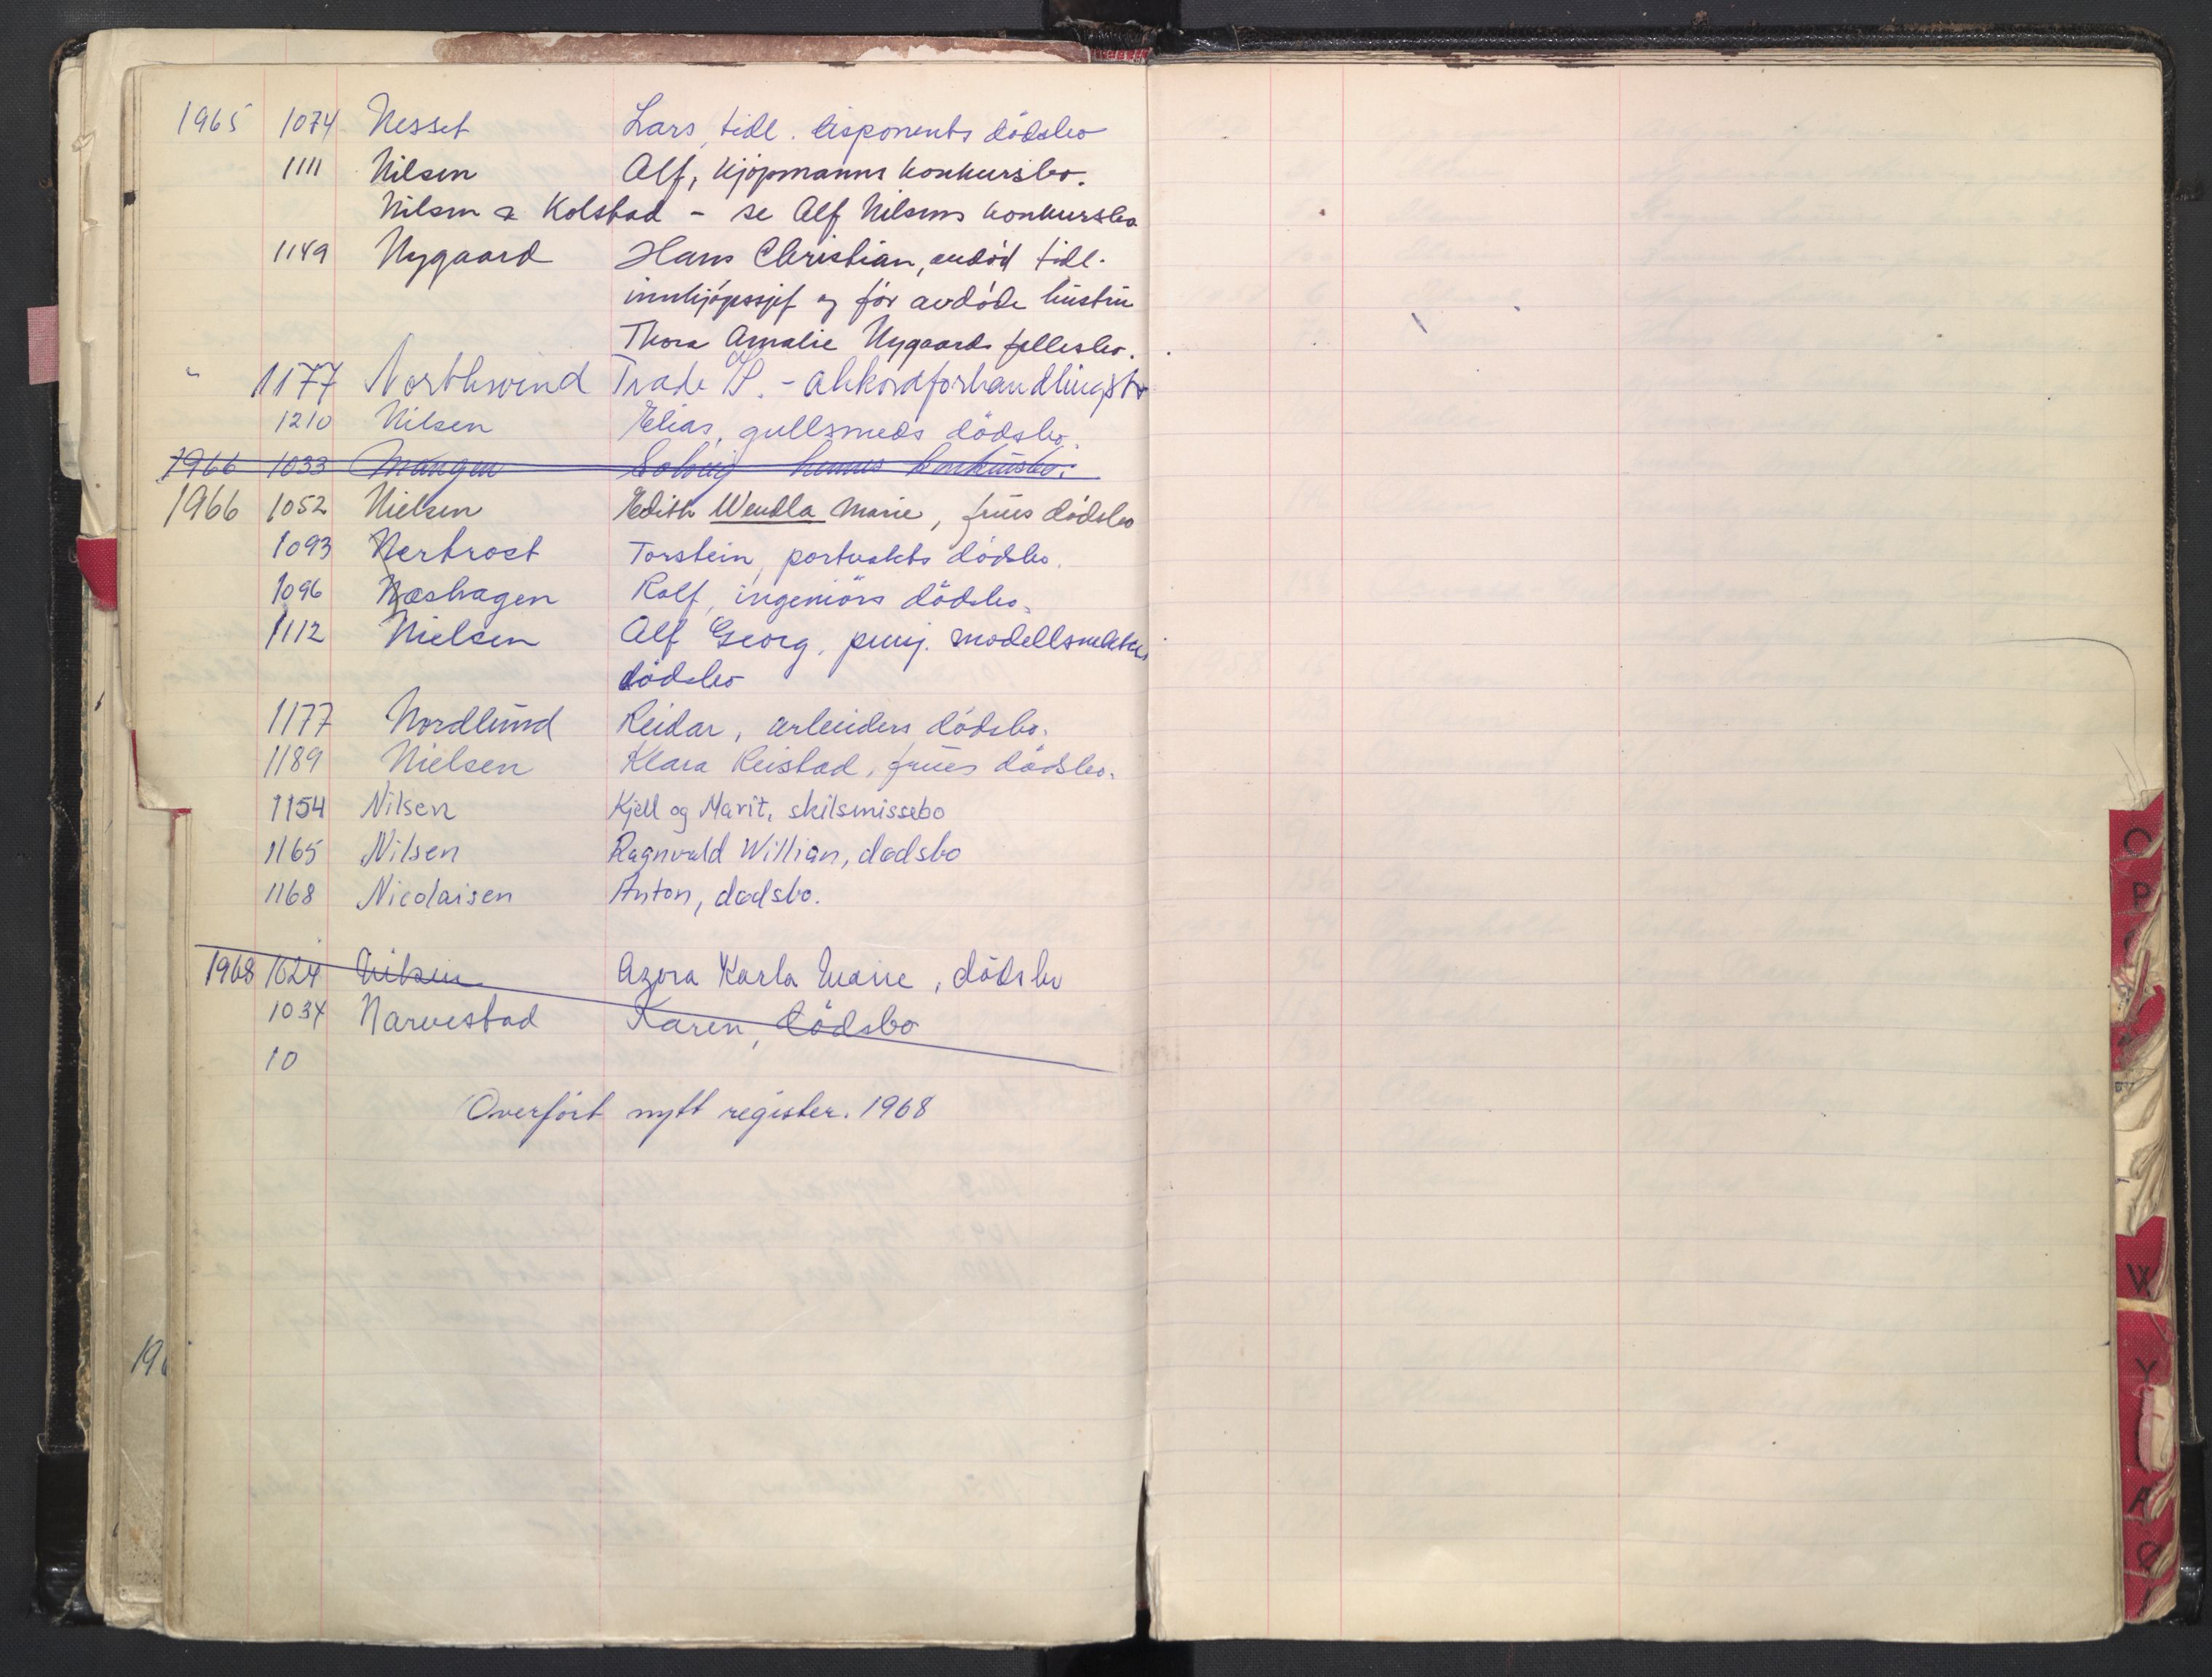 1965 1074 Nesset Lars, tidl. disponents dödsbo
1111 Nilsen Alf, kjøpmanns konkursbo.
Nilsen & Kolstad - se Alf Nilsens konkursbo
1149 Nygaard Hans Christian, avdød tidl.
innkjøpssjef og før avdøde hustru
Thora Amalie Nygaards fellesbo.
" 1177 Northwind Trade - akkordforhandlingsbo
1210 Nilsen Elias, gullsmeds dödsbo.
1966 1033 Mangen Solveig konkursbo.
1966 1052 Nielsen Edith Wendla Marie, frues dödsbo
1093 Nerbrost Torstein, portvakts dödsbo.
1096 Næshagen Rolf, ingeniörs dödsbo.
1112 Nielsen Alf Georg, pensj. modellsnekkers
dödsbo
1177 Nordlund Reidar, arbeiders dödsbo.
1189 Nielsen Klara Reistad, frues dödsbo.
1154 Nilsen Kjell og Marit, skilsmissebo
1165 Nilsen Ragnvald Willian, dødsbo
1168 Nicolaisen Anton, dødsbo.
1968 1024 Nilsen Azora Karla Marie, dödsbo
1034 Narvestad Karen, dödsbo
10
Overført nytt register. 1968
196
O
P
W
Y
A
Ø